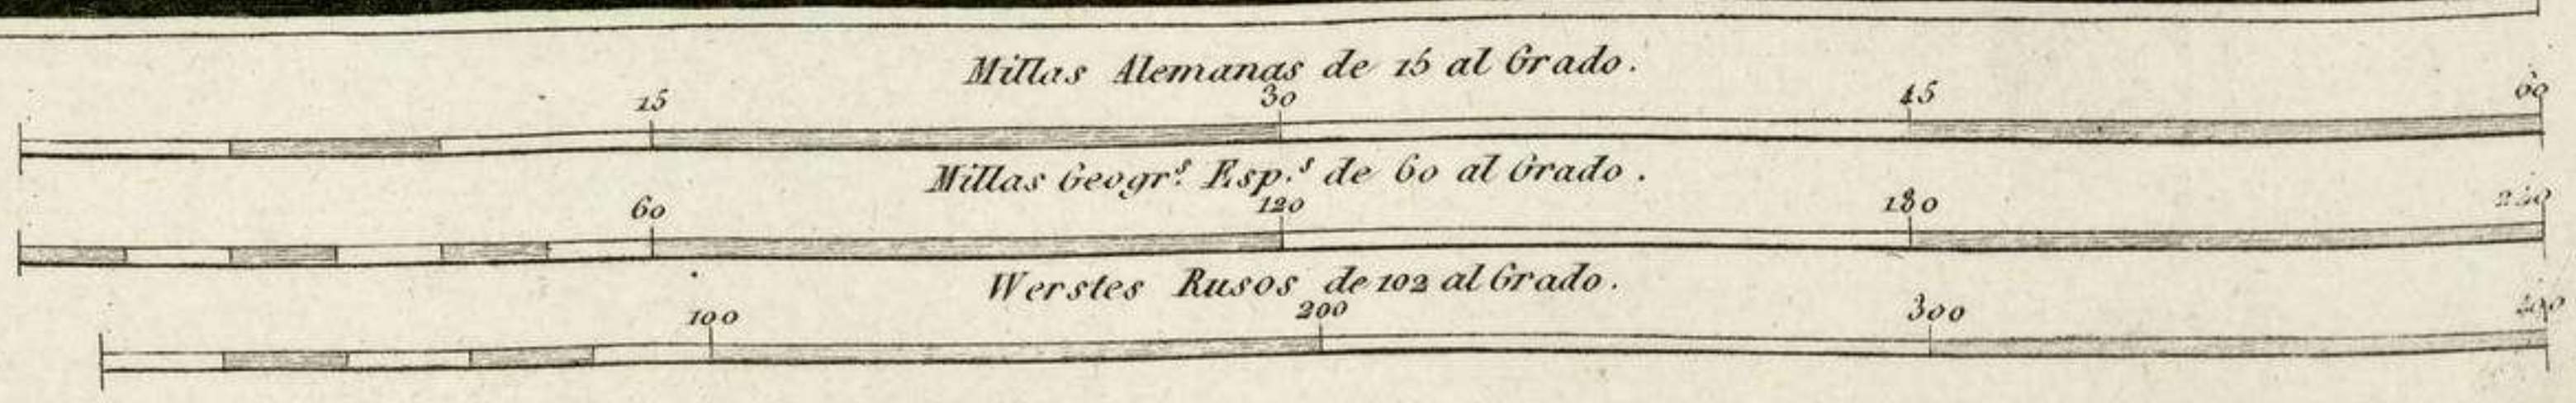 Millas Alemanas de 15 al Grado.
15 30 45 60
Millas Geogr.s Esp.s de 60 al Grado.
60 120 180 240
Werstes Rusos de 102 al Grado.
100 200 300 400